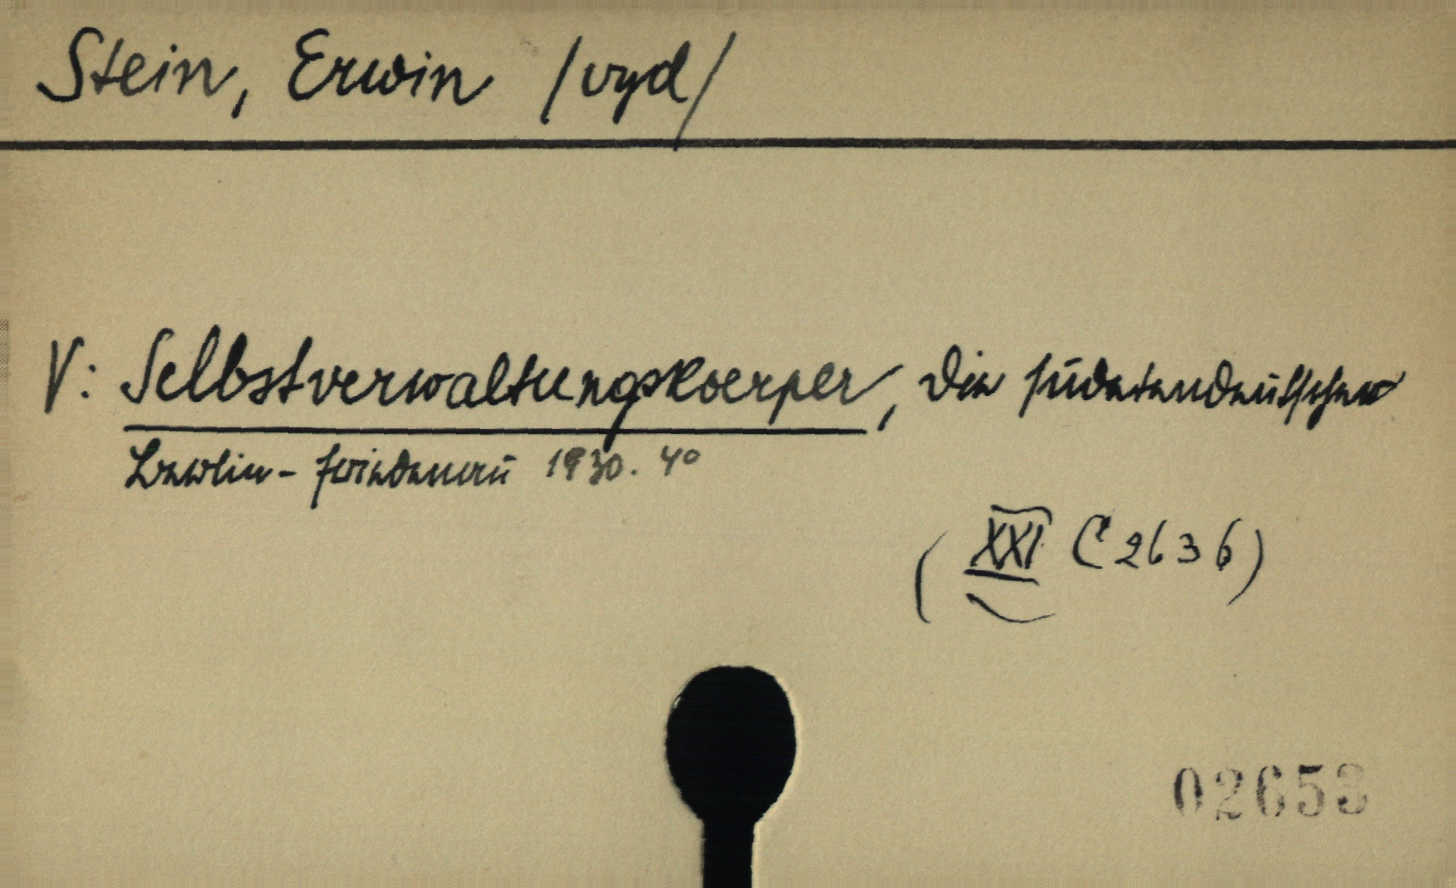 Stein, Erwin /vyd/
V: Selbstverwaltungskoerper, die sudetendeutschen
Berlin-Friedenau 1930. 4°
(XXI C 2636)
02653